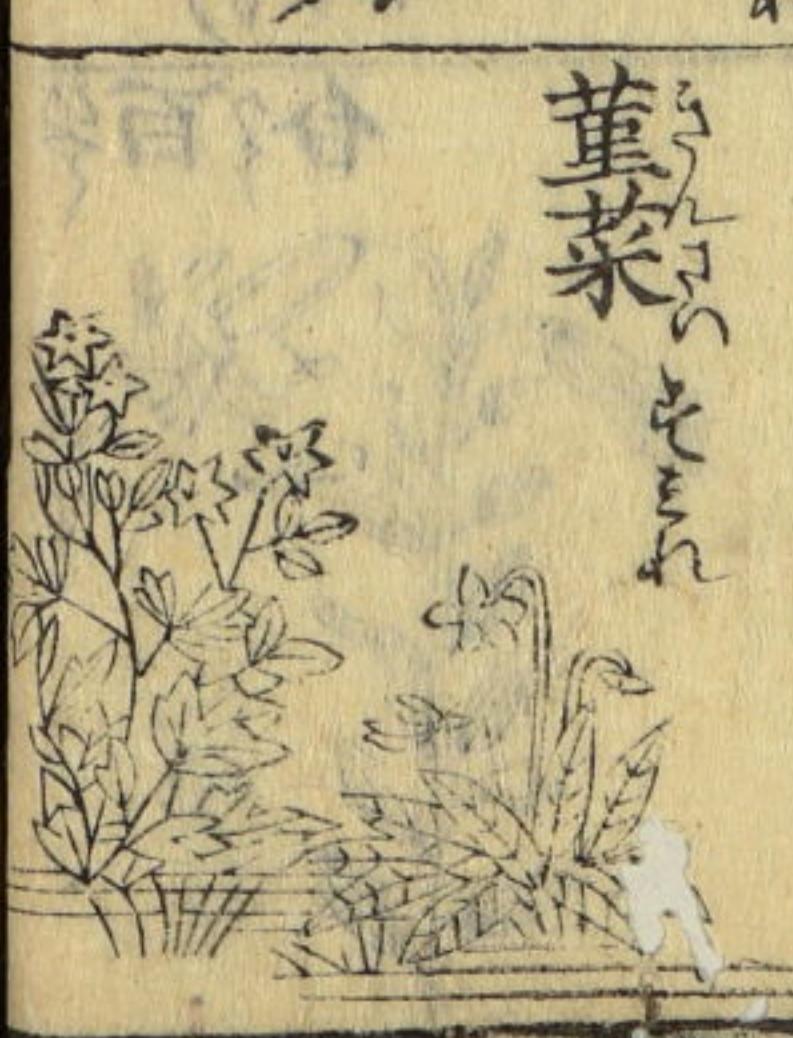 菫菜
きんさい
すみれ